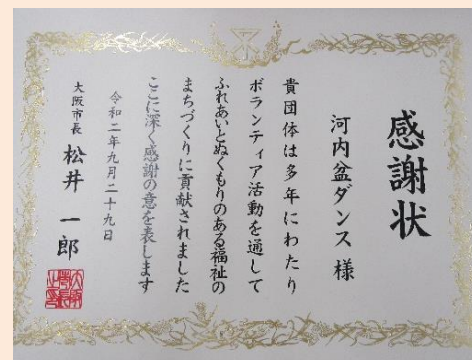 感謝状
河内盆ダンス 様
貴団体は多年にわたり
ボランティア活動を通して
ふれあいとぬくもりのある福祉の
まちづくりに貢献されました
ここに深く感謝の意を表します
令和二年九月二十九日
大阪市長 松井 一郎